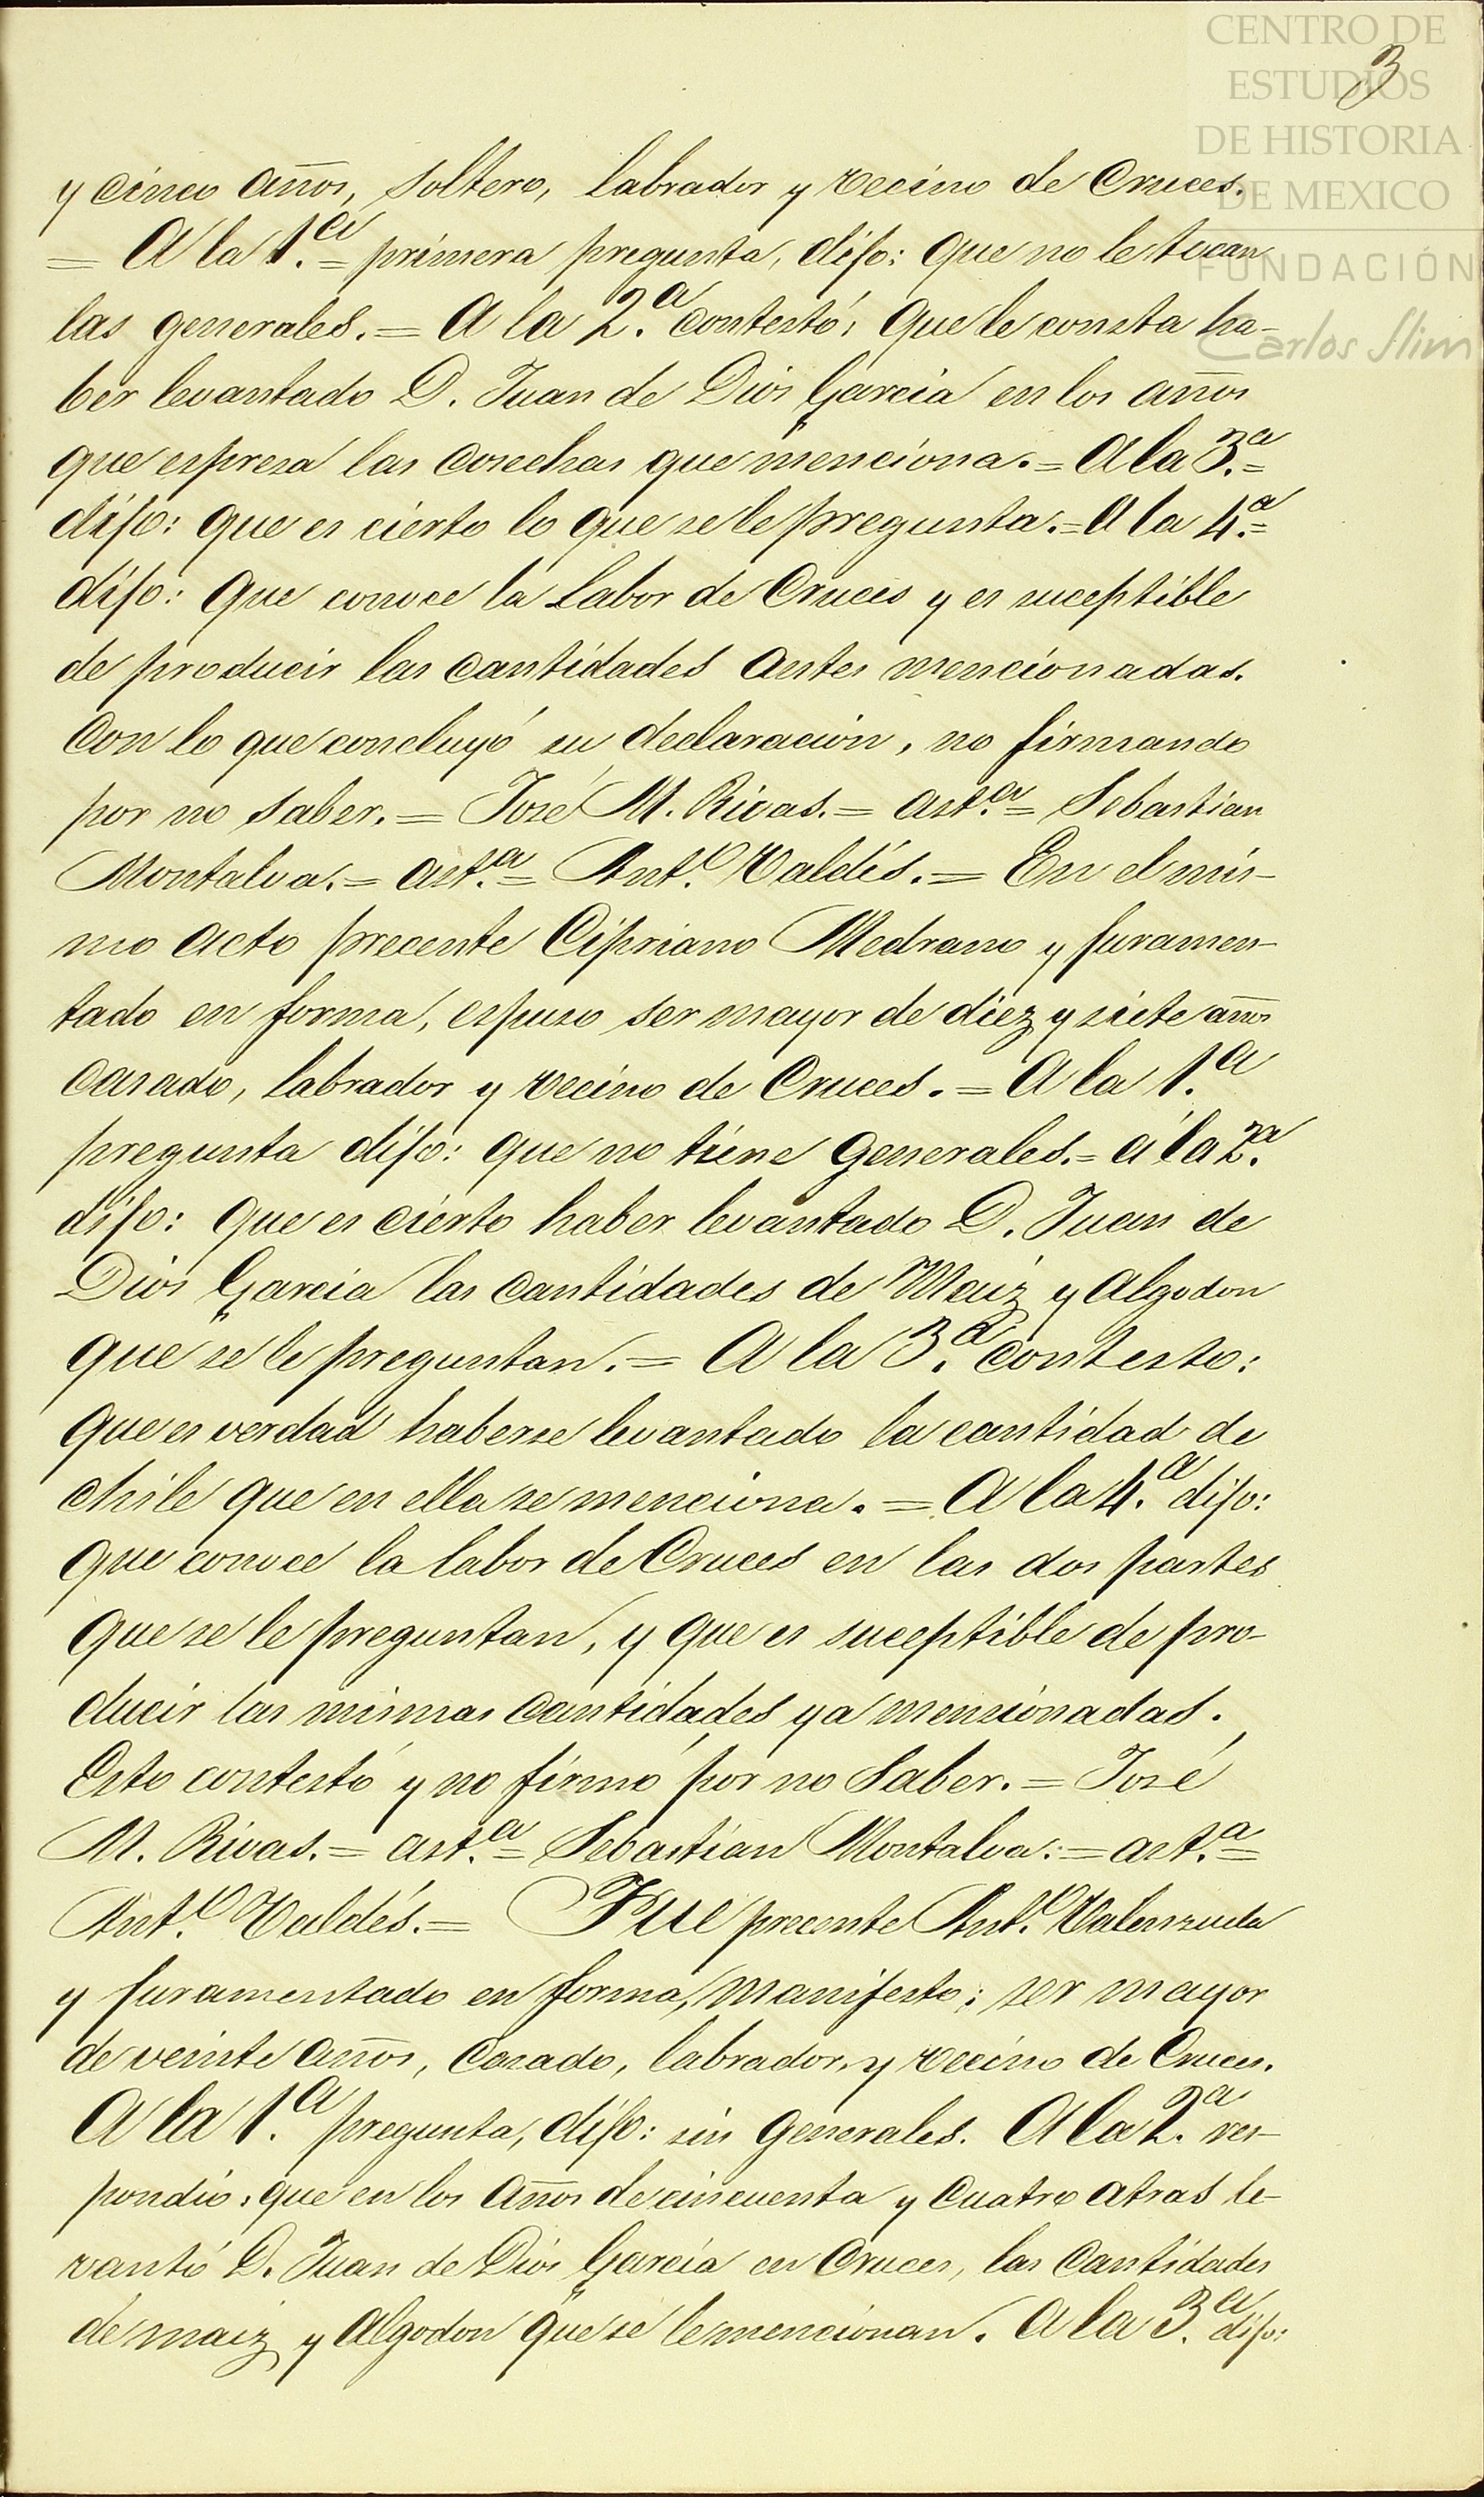 CENTRO DE
ESTUDIOS
DE HISTORIA
DE MEXICO
FUNDACIÓN
Carlos Slim
3
y cinco años, soltero, labrador y vecino de Cruces.
= A la 1.ª = primera pregunta, dijo: que no le tocan
las generales. = A la 2.ª contestó: que le consta ha-
ber levantado D. Juan de Dios Garcia en los años
que espresa las cosechas que menciona. = A la 3.ª =
dijo: que es cierto lo que se le pregunta. = A la 4.ª =
dijo: que conoce la Labor de Cruces y es suceptible
de producir las cantidades antes mencionadas.
Con lo que concluyó su declaracion, no firmando
por no saber. = José M. Rivas. = ast.ª = Sebastian
Montalva. = ast.ª = Ant.º Valdés. = En el mis-
mo acto precente Cipriano Medrano y juramen-
tado en forma, espuso ser mayor de diez y siete años
casado, labrador y vecino de Cruces. = A la 1.ª
pregunta dijo: que no tiene generales. = á la 2.ª
dijo: que es cierto haber levantado D. Juan de
Dios Garcia las cantidades de Maiz y algodon
que se le preguntan. = A la 3.ª contesto:
que es verdad haberse levantado la cantidad de
chile que en ella se menciona. = A la 4.ª dijo:
que conoce la labor de Cruces en las dos partes
que se le preguntan, y que es suceptible de pro-
ducir las mismas cantidades ya mensionadas.
Esto contestó y no firmó por no saber. = José
M. Rivas. = ast.ª = Sebastian Montalva: = ast.ª =
Ant.º Valdés. = Fue precente Ant.º Valenzuela
y juramentado en forma, manifesto; ser mayor
de veinte años, casado, labrador, y vecino de Cruces.
A la 1.ª pregunta, dijo: sin generales. A la 2.ª res-
pondio: que en los años de cincuenta y cuatro atras le-
vantó D. Juan de Dios Garcia en Cruces, las cantidades
de maiz y algodon que se le mencionan. A la 3.ª dijo: